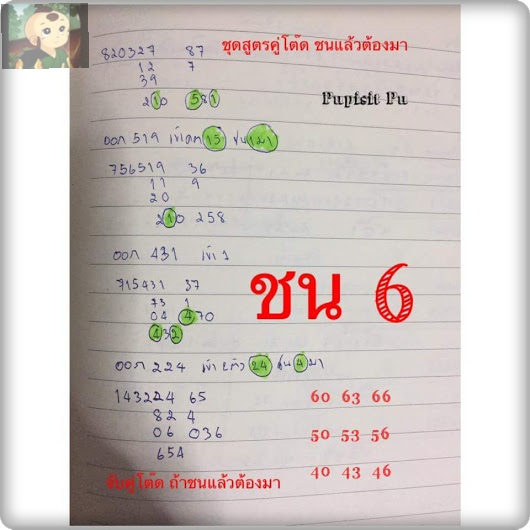 ชุดสูตรคู่โต๊ด ชนแล้วต้องมา
820327 87
12 7
39
210 581
Pupisit Pu
ออก 519 เข้า 15 ชน 1 มา
756519 36
11 9
20
210 258
ออก 431 เข้า 1
715431 37
73 1
04 470
432
ชน 6
ออก 224 เข้า 24 ชน 4 มา
143224 65
82 4
06 036
654
60 63 66
50 53 56
40 43 46
จับคู่โต๊ด ถ้าชนแล้วต้องมา